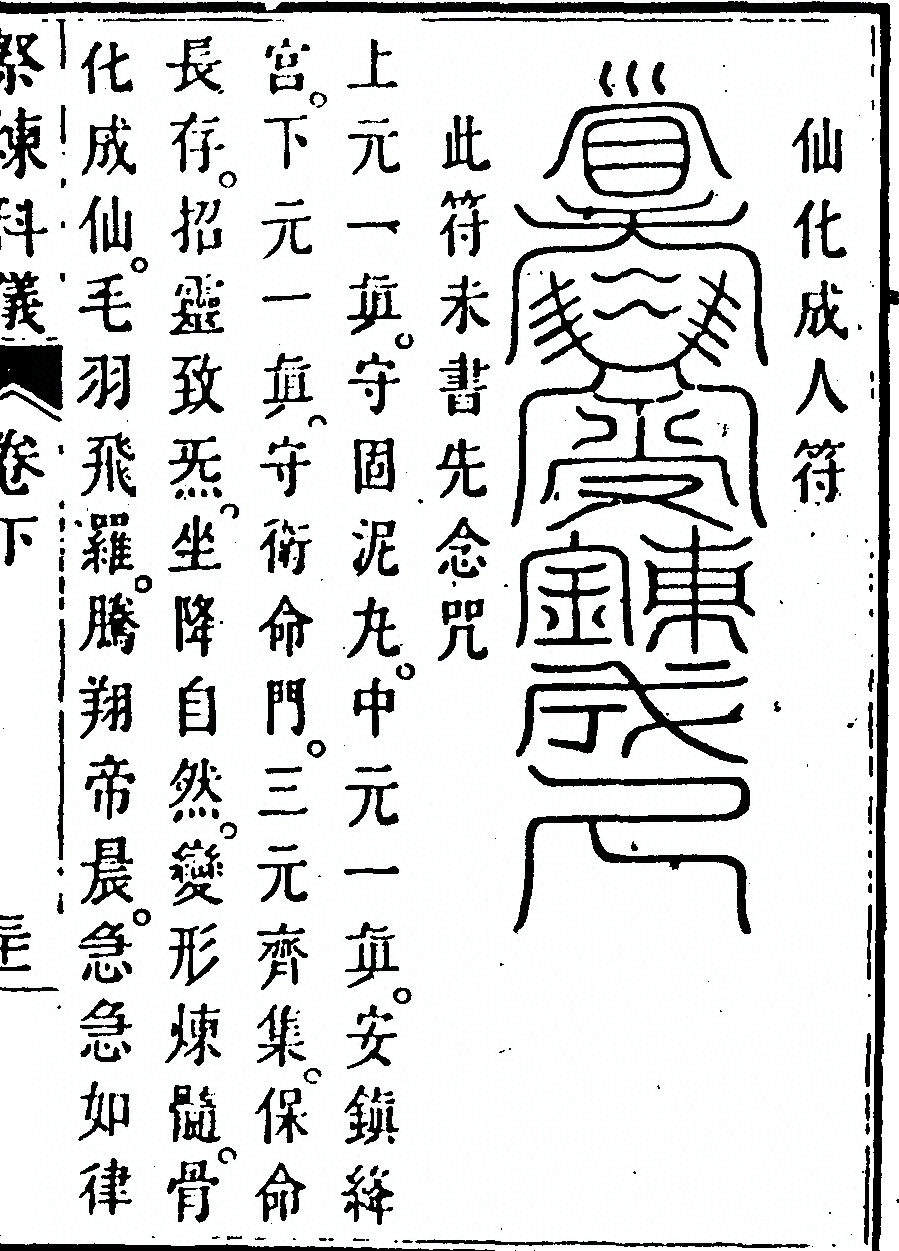 仙化成人符
此符未書先念咒
上元一眞。守固泥丸。中元一眞。安鎮絳
宮。下元一眞。守衛命門。三元齊集。保命
長存。招靈致炁。坐降自然。變形煉髓。骨
化成仙。毛羽飛羅。騰翔帝晨。急急如律
祭煉科儀 卷下